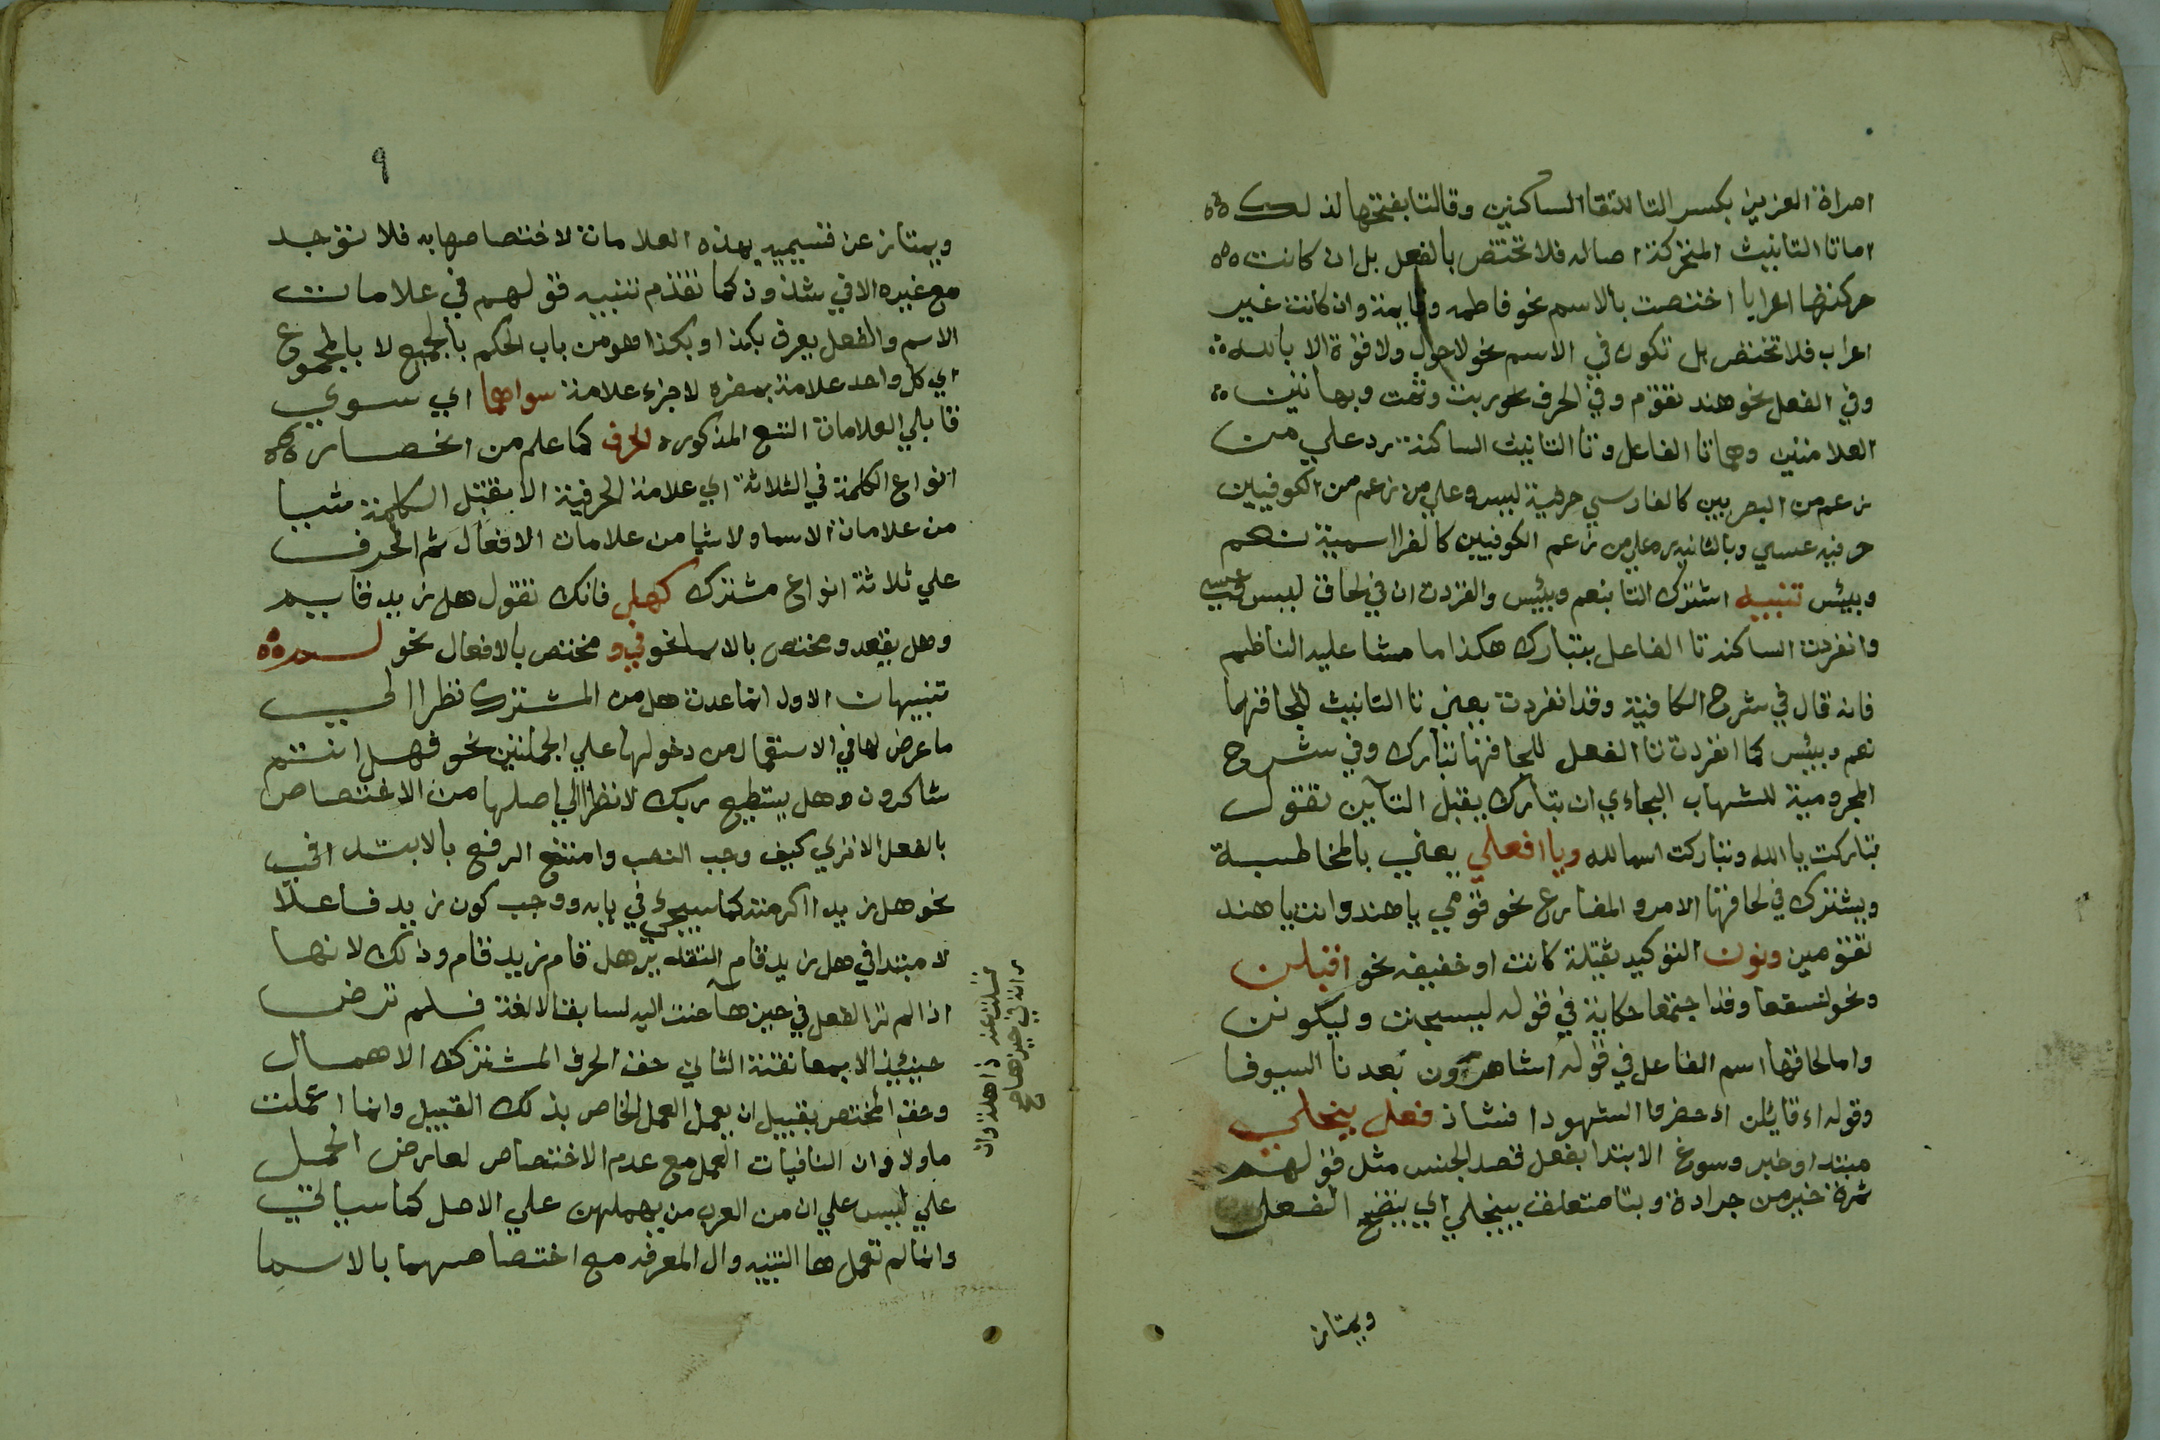 امراة العزيز بكسر التا لالتقا الساكنين وقالتا بفتحها لذلك
اما تا التانيث المتحركة اصالة فلا تختص بالفعل بل ان كانت
حركتها اعرابا اختصت بالاسم نحو فاطمه وقايمة وان كانت غير
اعراب فلا تختص بل تكون في الاسم نحو لا حول ولا قوة الا بالله
وفي الفعل نحو هند تقوم وفي الحرف نحو ربت وثمت وبهاتين
العلامتين وهما تا الفاعل وتا التانيث الساكنة رد علي من
زعم من البصريين كالفارسي حرفية ليس وعلي من زعم من الكوفيين
حرفيه عسي وبالثانيه رد علي من زعم الكوفيين كالفرا اسمية نعم
وبيس تنبيه اشترك التا بنعم وبيس وانفردت ان في لحاق ليس وعسي
وانفردت الساكنة تا الفاعل بتبارك هكذا ما مشا عليه الناظم
فانه قال في شرح الكافية وقد انفردت يعني تا التانيث للحاقها
نعم وبيس كما انفردت تا الفعل للحاقها تبارك وفي شرح
الجرومية للشهاب البجاءي ان تبارك يقبل التآين تقول
تباركت يا الله وتباركت اسما لله ويا افعلي يعني بالمخاطبة
ويشترك في لحاقها الامر والمضارع نحو قومي يا هند وانت يا هند
تقومين ونون التوكيد ثقيلة كانت او خفيفه نحو اقبلن
ونحو لنسفعا وقد اجتمعا حكاية في قوله ليسجنن وليكونن
واما لحاقها اسم الفاعل في قوله اشاهرون بعدنا السيوفا
وقوله اءقايلن اءحضروا الشهودا فشاذ فعل ينجلي
مبتدا وخبر وسوغ الابتدا بفعل قصد الجنس مثل قولهم
ثمرة خير من جرادة وبتا متعلق بينجلي اي يتضح الفعل
ويمتاز
٩
ويمتاز عن قسيميه بهذه العلامات لاختصاصها به فلا توجد
مع غيره الا في شذوذ كما تقدم تنبيه قولهم في علامات
الاسم والفعل يعرف بكذا او بكذا هو من باب الحكم بالجميع لا بالمجموع
اي كل واحد علامة بمفرده لا جزء علامة سواهما اي سوي
قابلي العلامات التسع المذكورة الحرف كما علم من انحصار
انواع الكلمة في الثلاثة اي علامة الحرفية الا يقبل الكلمة شيا
من علامات الاسما ولا شيا من علامات الافعال ثم الحرف
علي ثلاثة انواع مشترك كهل فانك تقول هل زيد قايم
وهل يقعد ومختص بالاسما نحو في ومختص بالافعال نحو لم
تنبيهات الاول انما عدت هل من المشترك نظرا الي
ما عرض لها في الاستعمال من دخولها علي الجملتين نحو فهل انتم
شاكرون وهل يستطيع ربك لا نظرا الي اصلها من الاختصاص
بالفعل الا تري كيف وجب النصب وامتنع الرفع بالابتدا في
نحو هل زيدا اكرمته كما سيجيء في بابه ووجب كون زيد فاعلا
لا مبتدا في هل زيد قام التقدير هل قام زيد قام وذلك لانها
اذا لم تر الفعل في حيزها حنت اليه لسابق الالفة فلم ترض
حينيذ الا بمعانقته الثاني حق الحرف المشترك الاهمال
وحق المختص بقبيل ان يعمل العمل الخاص بذلك القبيل وانما اعملت
ما ولا وان النافيات العمل مع عدم الاختصاص لعارض الحمل
علي ليس علي ان من العرب من يهملهن علي الاصل كما سياتي
وانما لم تعمل ها التنبيه وال المعرفه مع اختصاصهما بالاسما